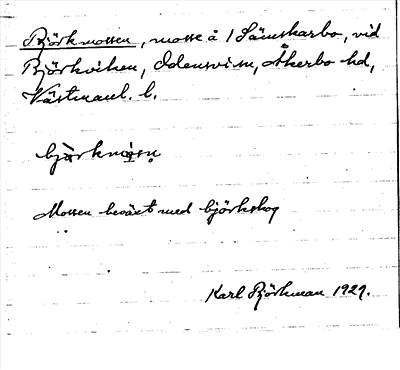 Björkmossen, mosse å 1 Sämskarbo, vid
Björkviken, Odensvi sn, Åkerbo hd,
Västmanl. l.
björkmosn
Mossen beväxt med björkskog
Karl Björkman 1929.